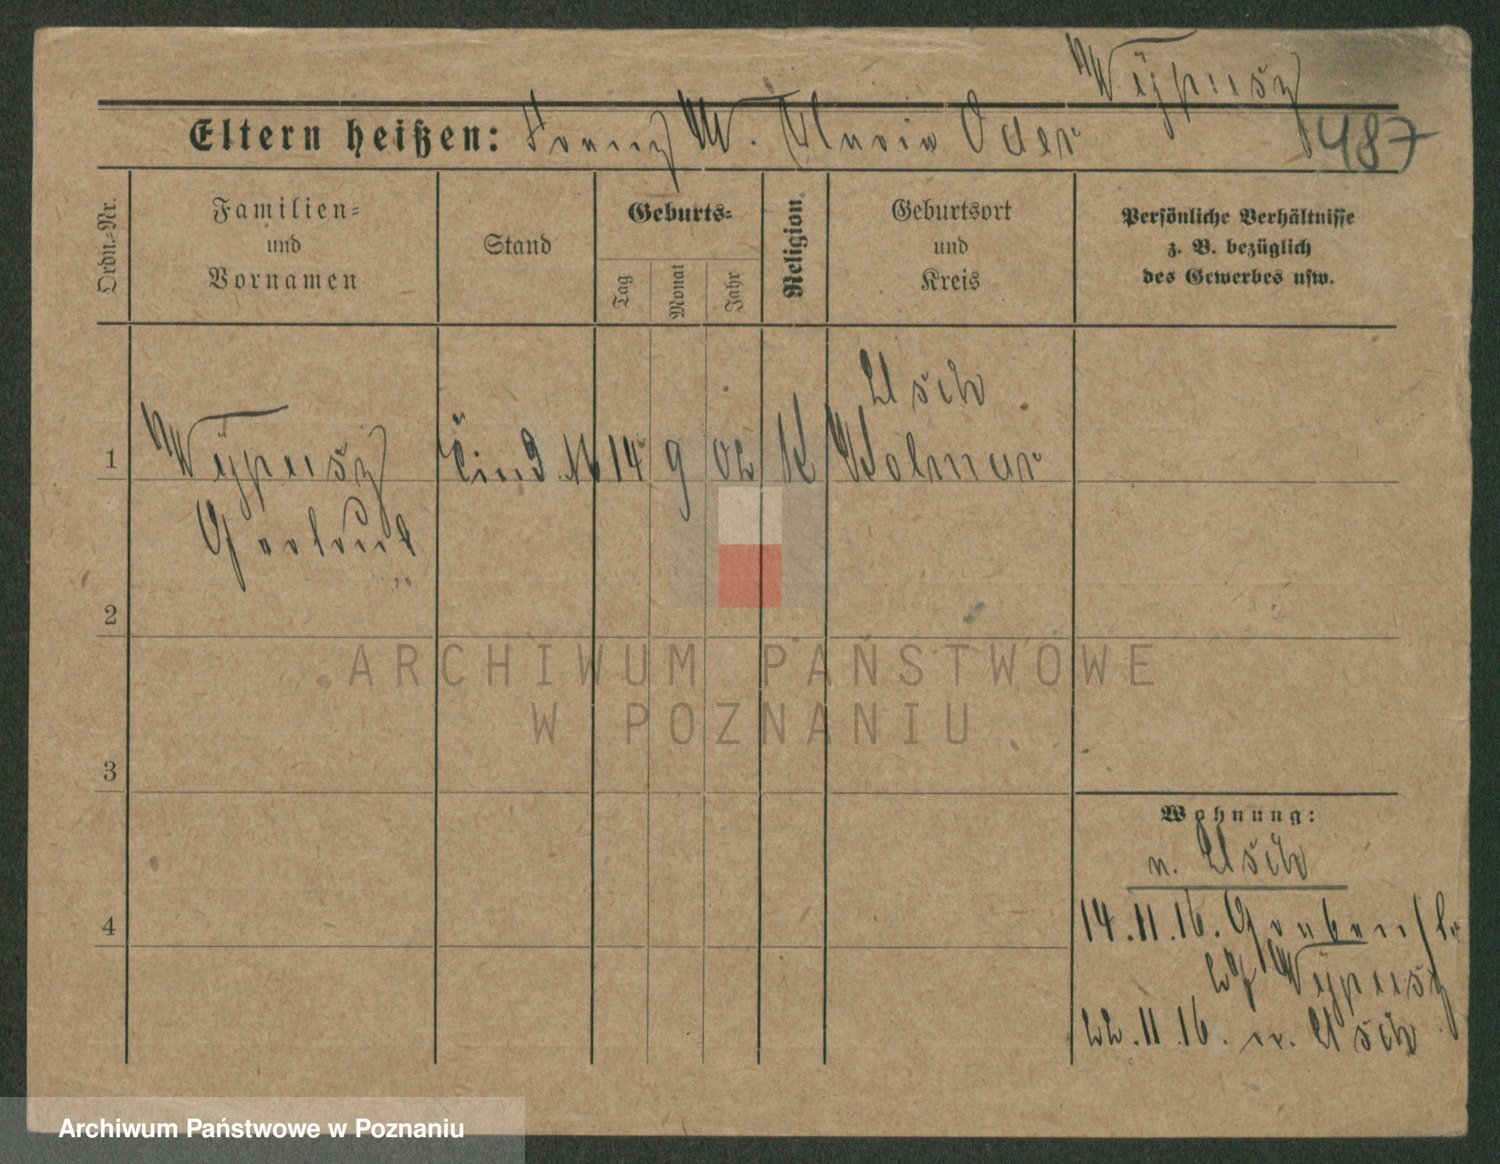 Wÿpusz
Eltern heißen: Franz W. Maria Oder
487
Ordn.=Nr.
Familien=
und
Vornamen
Stand
Geburts=
Tag
Monat
Jahr
Religion.
Geburtsort
und
Kreis
Persönliche Verhältnisse
z. B. bezüglich
des Gewerbes usw.
Usch
1 Wÿpusz 14 9 02 K Kolmar
2
3
4
ARCHIWUM PAŃSTWOWE
W POZNANIU
Wohnung:
n. Usch
14.11.16.
Wÿpusz
22.11.16. Usch
Archiwum Państwowe w Poznaniu